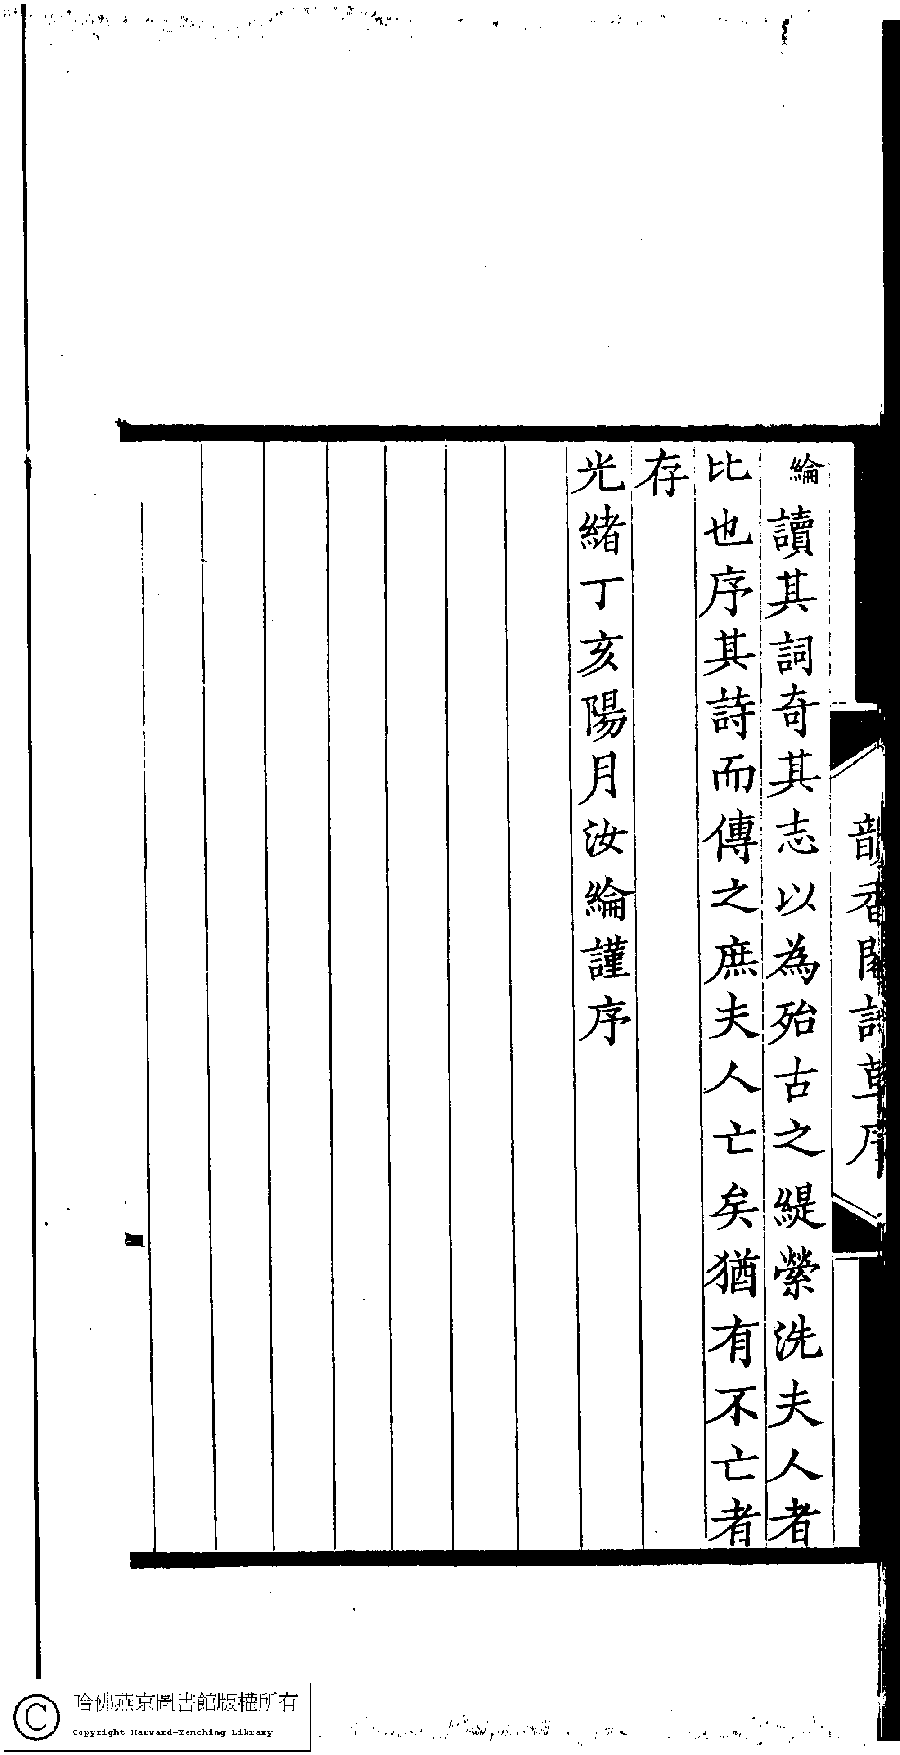 綸讀其詞奇其志以為殆古之緹縈洗夫人者
比也序其詩而傳之庶夫人亡矣猶有不亡者
存
光緒丁亥陽月汝綸謹序
韻香閣詩草序
哈佛燕京圖書館版權所有
Copyright Harvard-Yenching Library